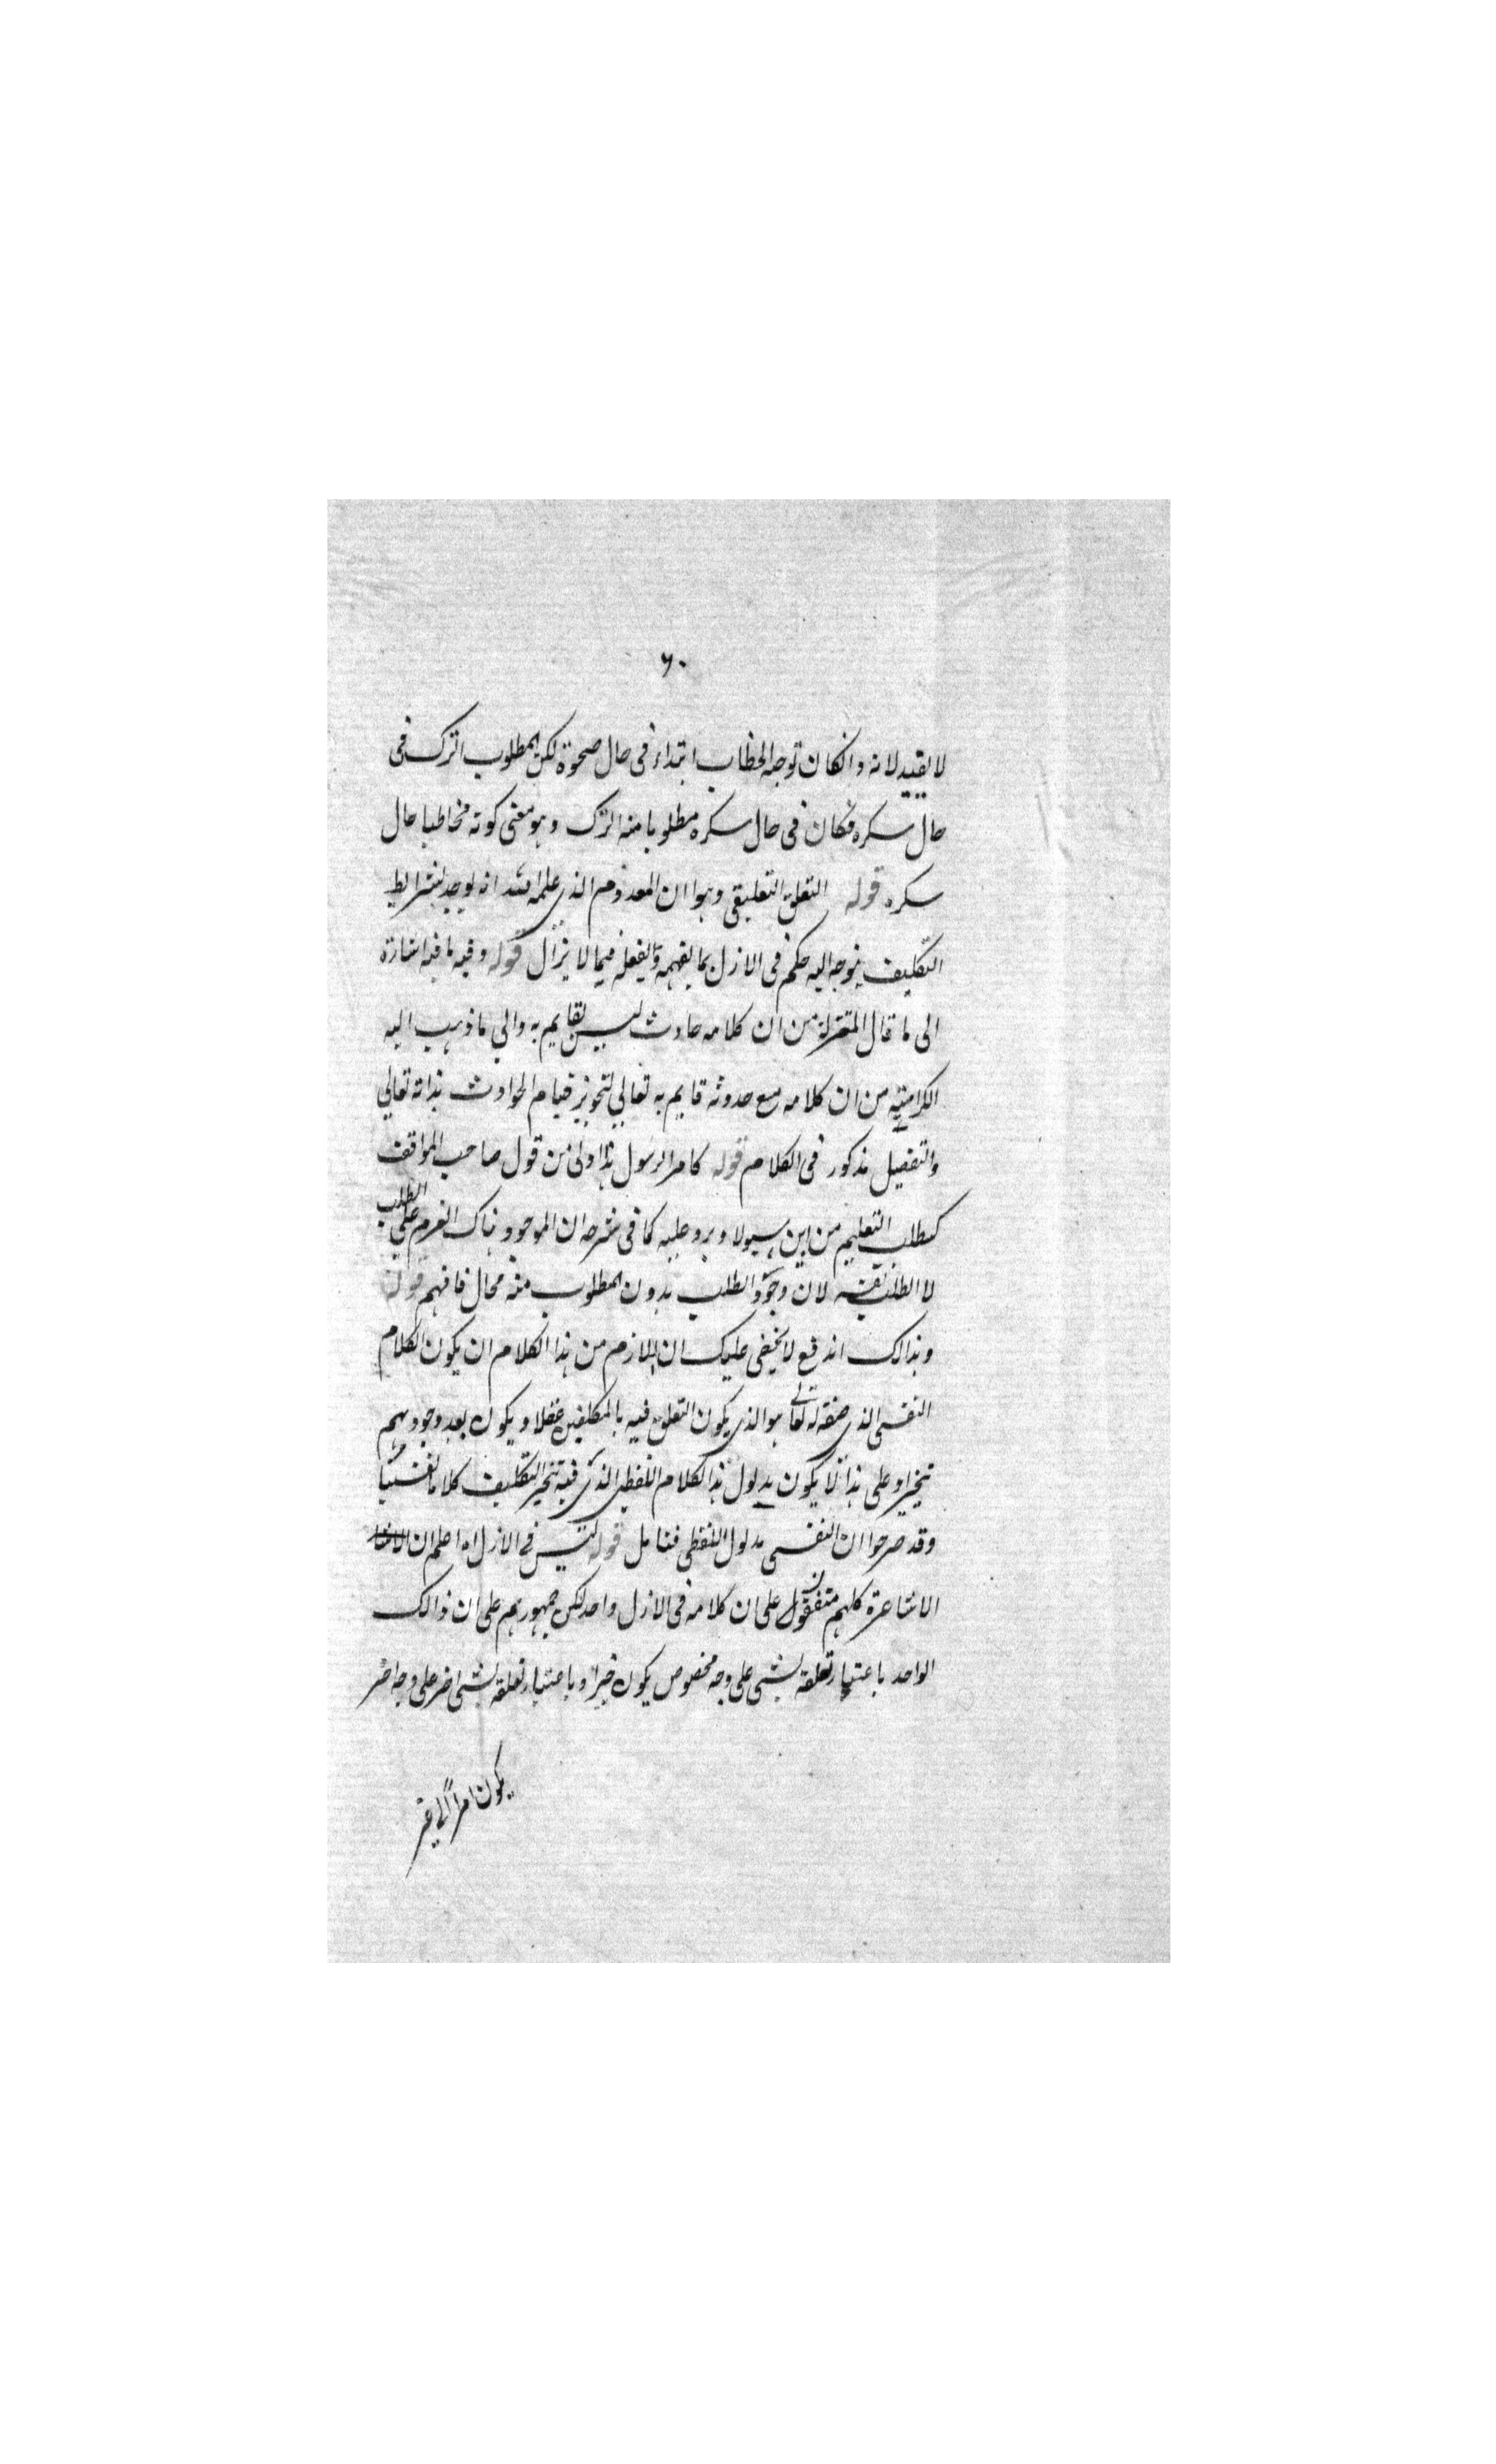 ٦٠
لا يقيد لانه وانكان توجه الخطاب ابتداء فى حال صحوة لكن المطلوب الترك فى
حال سكره فكان فى حال سكره مطلوبا منه الترك وهو معنى كونه مخاطبا حال
سكره قوله التعلق التعليقى وهو ان المعدوم الذى علم الله انه يوجد بشرايط
التكليف يتوجه اليه حكم فى الازل بما يفهمه ويفعله فيما لا يزال قوله وفيه ما فيه اشارة
الى ما قال المعتزلة من ان كلامه حادث ليس بقايم به والي ما ذهب اليه
الكرامية من ان كلامه مع حدوثه قايم به تعالي لتجويز قيام الحوادث بذاته تعالي
والتفصيل مذكور فى الكلام قوله كامر الرسول هذا اولى من قول صاحب المواقف
كطلب التعليم من ابن سيولد ويرد عليه كما فى شرحه ان الموجود هناك العزم علي الطلب
لا الطلب نفسه لان وجود الطلب بدون المطلوب منه محال فافهم قوله
وبذالك اندفع لا يخفى عليك ان اللازم من هذا الكلام ان يكون الكلام
النفسى الذى صفة له تعالى هو الذى يكون التعلق فيه بالمكلفين عقلا ويكون بعد وجودهم
تنجيزا وعلى هذا لا يكون مدلول هذا الكلام اللفظى الذى فيه تنجيز التكليف كلاما نفسيا
وقد صرحوا ان النفسى مدلول اللفظى فتامل قوله ليس فى الازل اه اعلم ان الاشا
الاشاعرة كلهم متفقون على ان كلامه فى الازل واحد لكن جمهورهم على ان ذالك
الواحد باعتبار تعلقه بشئ على وجه مخصوص يكون خبرا وباعتبار تعلقه بشئ اخر على وجه اخر
يكون امرا